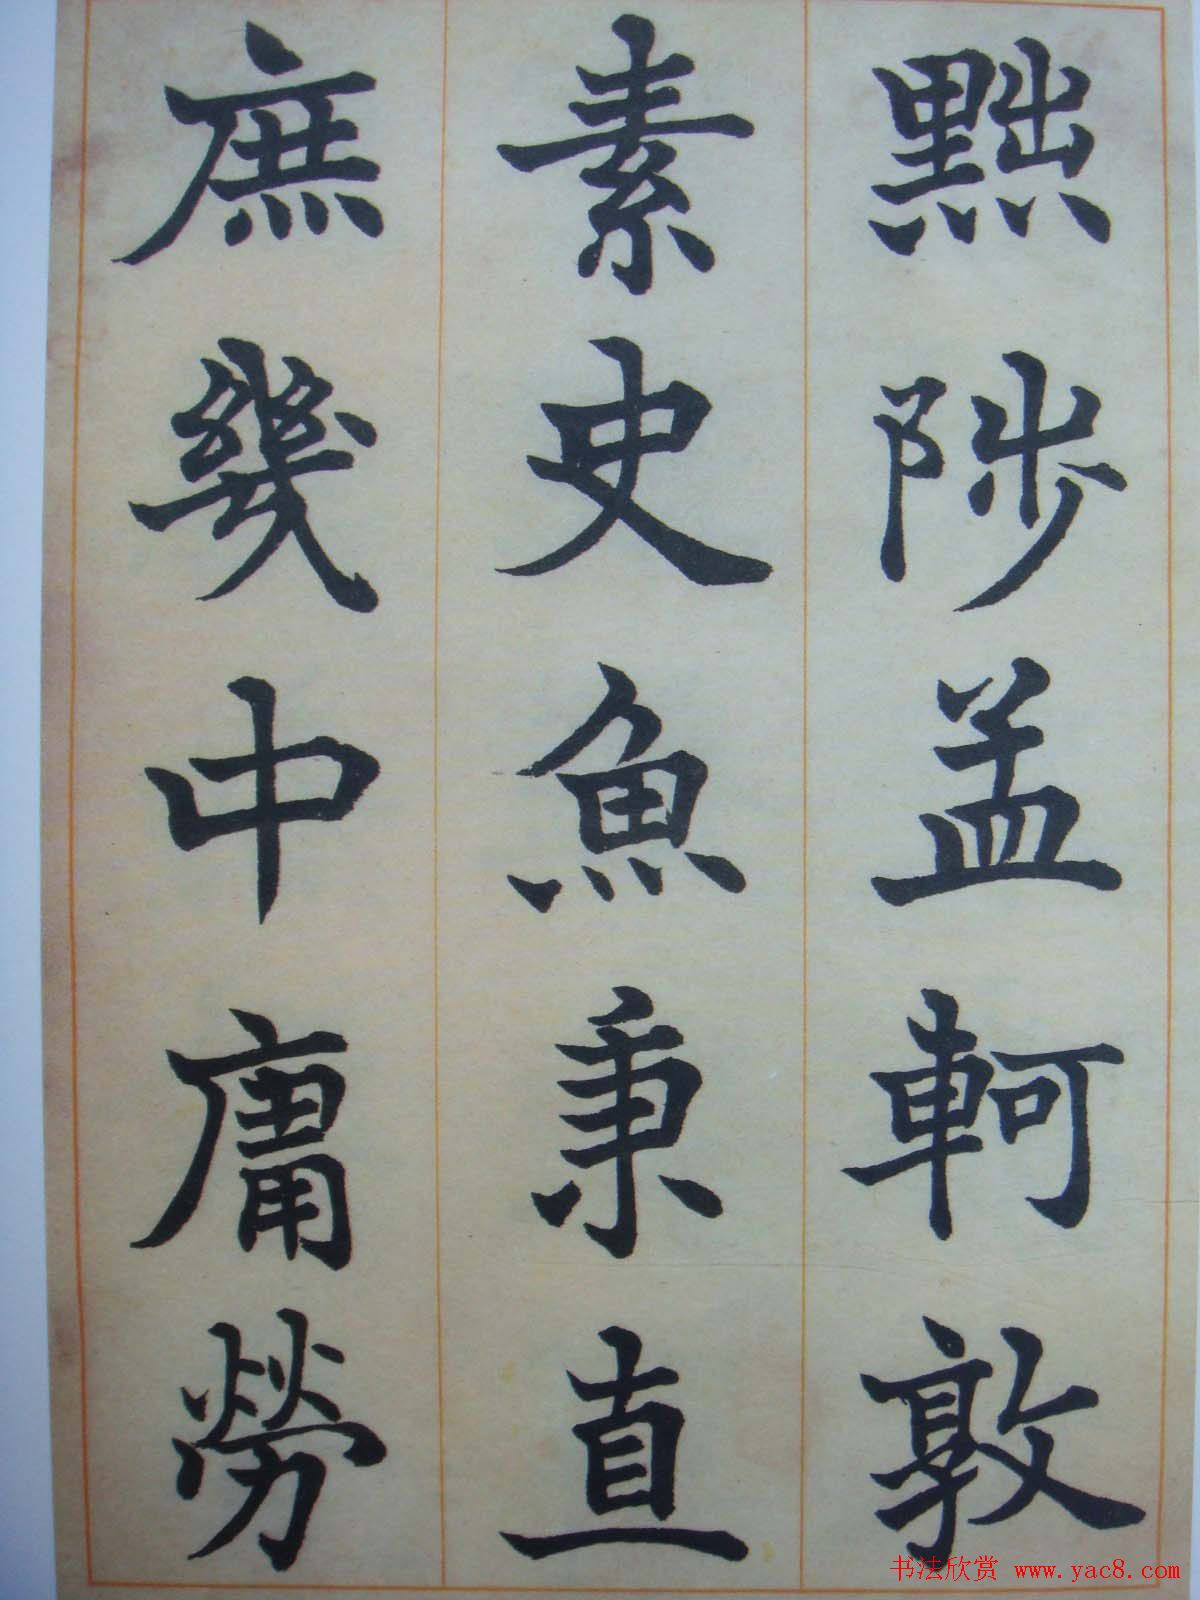 黜陟孟軻敦
素史魚秉直
庶幾中庸勞
书法欣赏 www.yac8.com